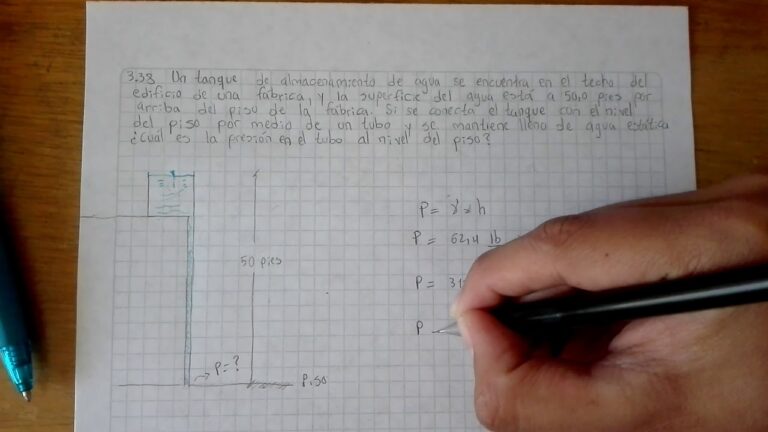 3.38 Un tanque de almacenamiento de agua se encuentra en el techo del
edificio de una fábrica, y la superficie del agua está a 50,0 pies por
arriba del piso de la fábrica. Si se conecta el tanque con el nivel
del piso por medio de un tubo y se mantiene lleno de agua estática
¿Cuál es la presión en el tubo al nivel del piso?
P = γ * h
P = 62,4 lb
50 pies
P = 31
P
P=?
Piso